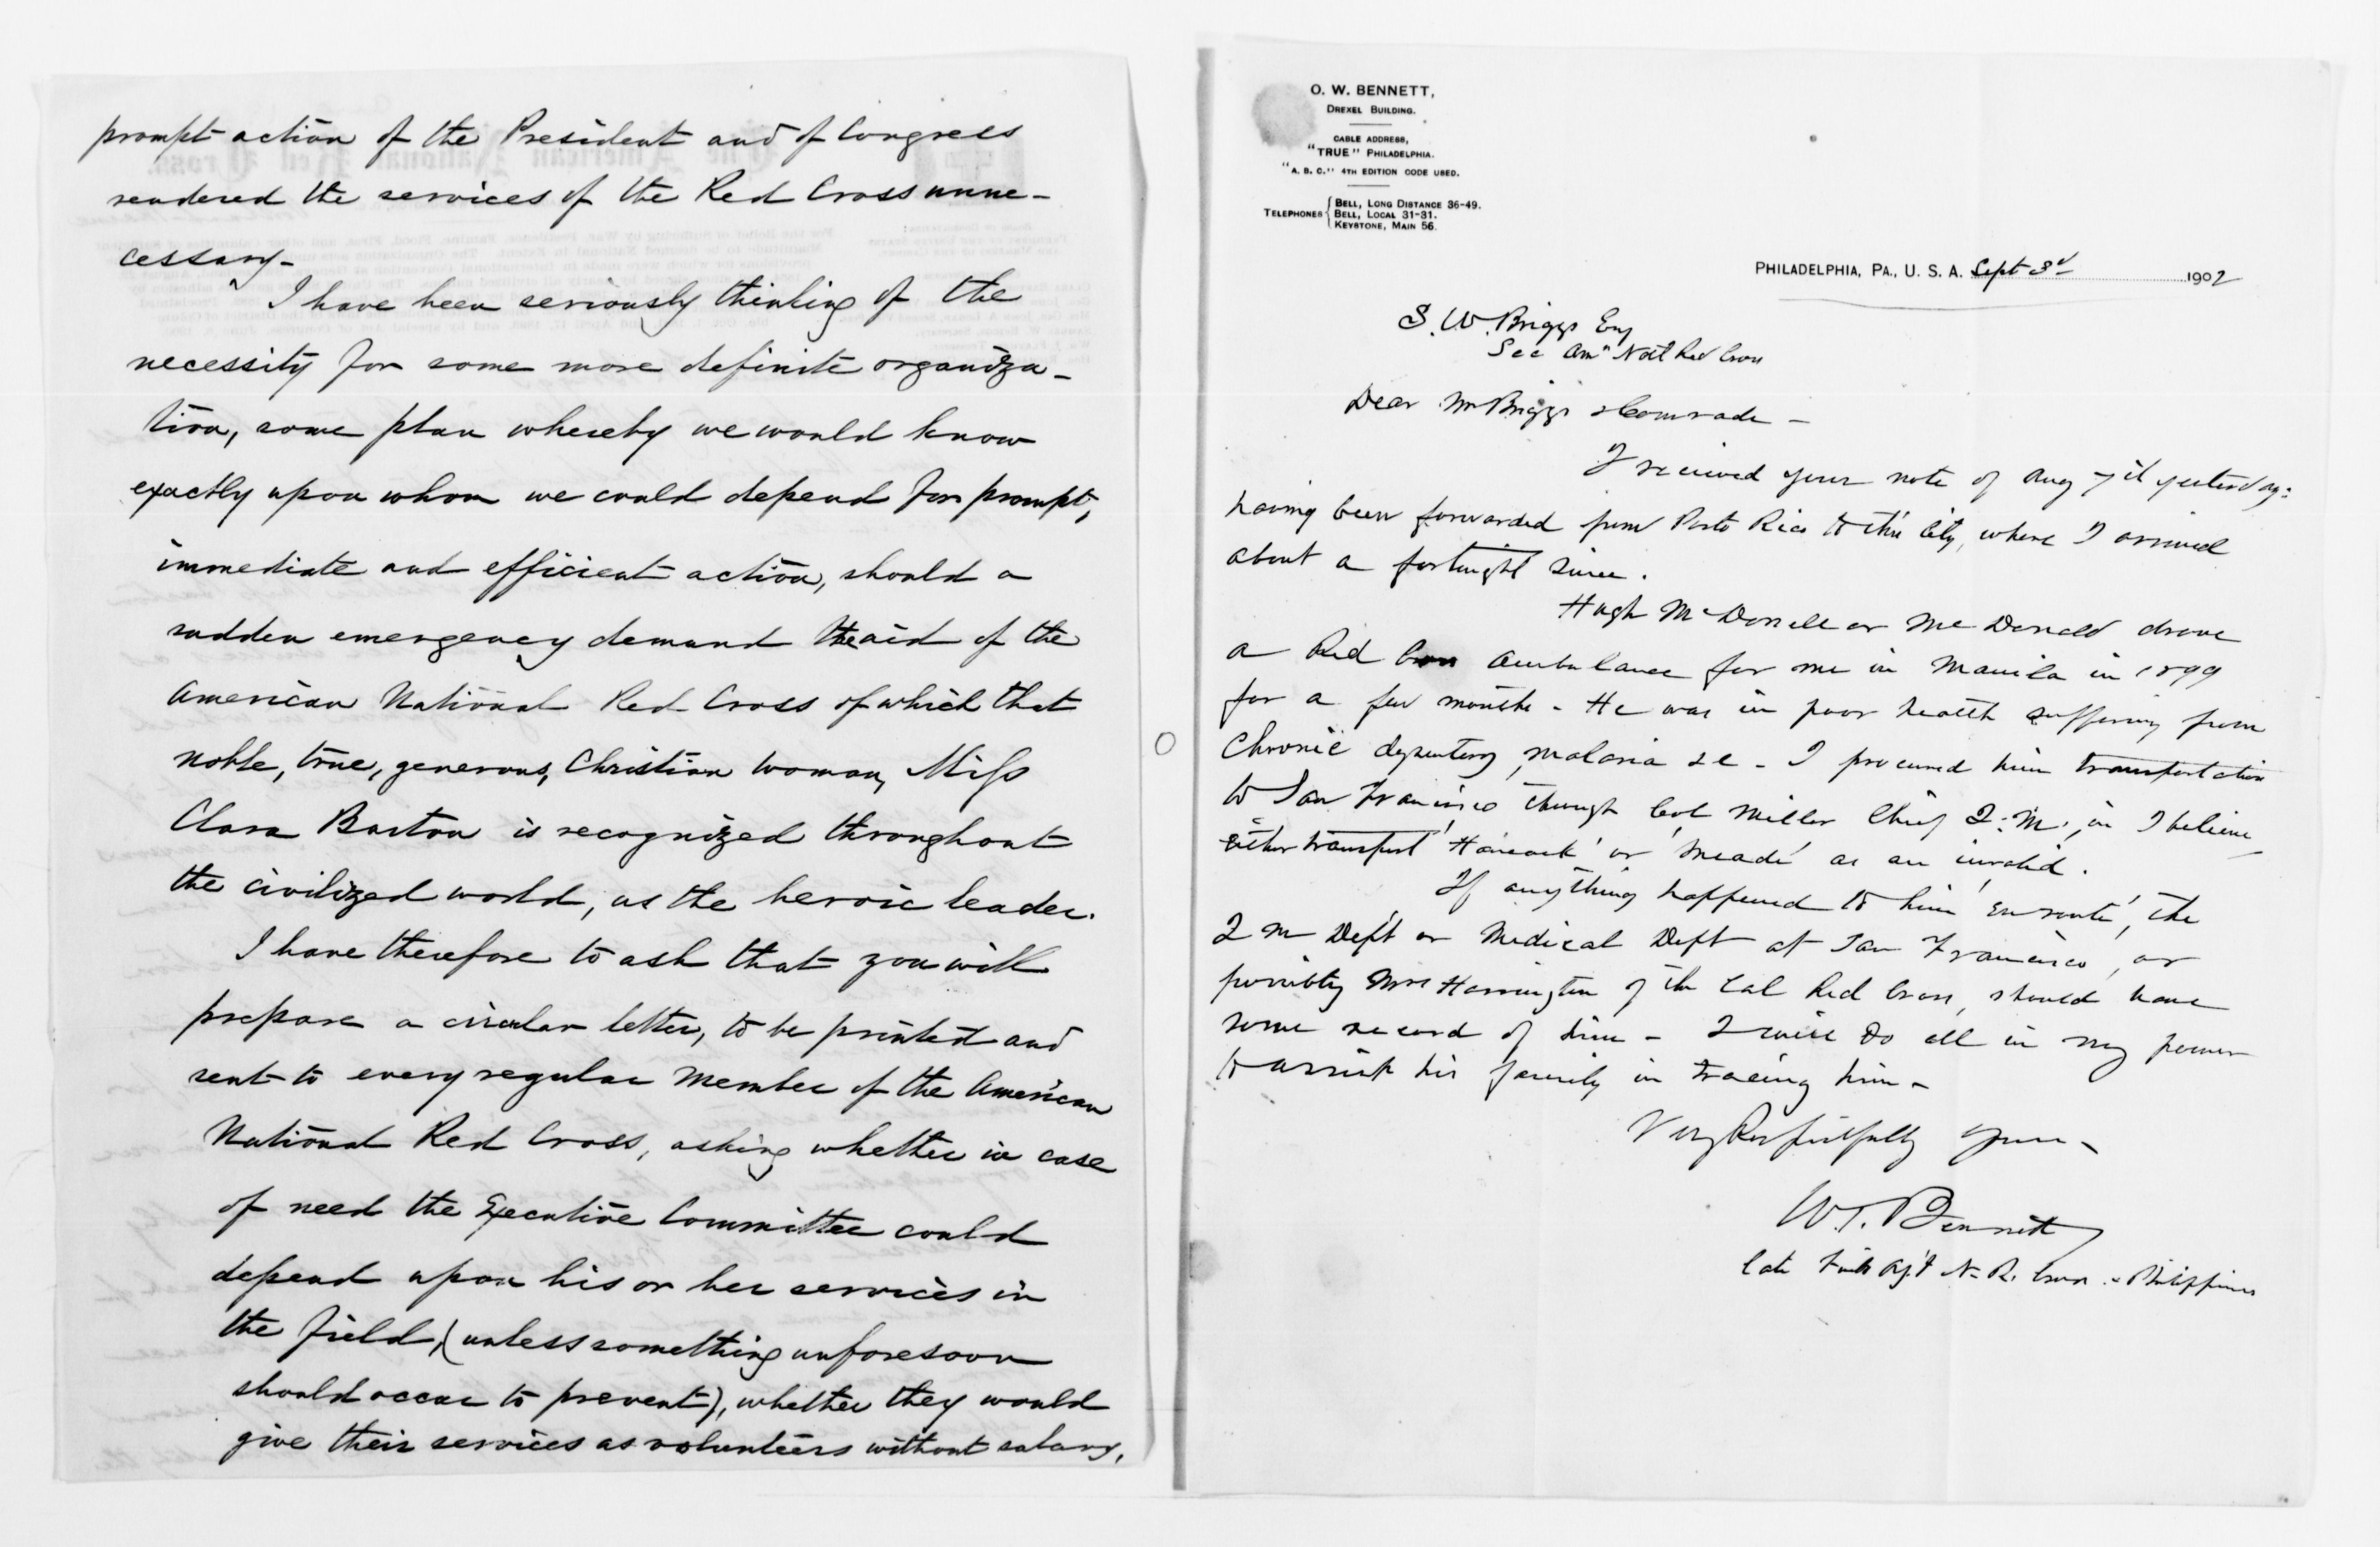 prompt action of the President and of Congress
rendered the services of the Red Cross unne-
cessary-
I have been seriously thinking of the
necessity for some more definite organiza-
tion, some plan whereby we would know
exactly upon whom we could depend for prompt,
immediate and efficient action, should a
sudden emergency demand the aid of the
American National Red Cross of which that
noble, true, generous, Christian woman, Miss
Clara Barton is recognized throughout
the civilized world, as the heroic leader.
I have therefore to ask that you will
prepare a circular letter, to be printed and
sent to every regular member of the American
National Red Cross, asking whether in case
of need the Executive Committee could
depend upon his or her services in
the field, (unless something unforesoon
should occur to prevent), whether they would
give their services as volunteers without salary,
O. W. BENNETT,
DREXEL BUILDING.
CABLE ADDRESS,
"TRUE" PHILADELPHIA.
"A. B. C." 4TH EDITION CODE USED.
TELEPHONES { BELL, LONG DISTANCE 36-49.
BELL, LOCAL 31-31.
KEYSTONE, MAIN 56.
PHILADELPHIA, PA., U. S. A. Sept 3d 1902
S. W. Briggs Esq
Sec Amn Natl Red Cross
Dear Mr Briggs & Comrade -
I received your note of Aug 7th yesterday:
having been forwarded from Porto Rico to this City, where I arrived
about a fortnight since.
Hugh McDonell or McDonald drove
a Red Cross Ambulance for me in Manila in 1899
for a few months - He was in poor health suffering from
Chronic dysentery, malaria &c - I procured him transportation
to San Francisco through Col Miller Chief Q.M., on I believe
either transport 'Hancock' or 'Meade' as an invalid.
If anything happened to him 'en route', the
Q M Dept or Medical Dept at San Francisco, or
possibly Mrs Harrington of the Cal Red Cross, should have
some record of him - I will do all in my power
to assist his family in tracing him -
Very Respectfully Yours -
W. T. Bennett
late Agt N. R. Cross - Philippines